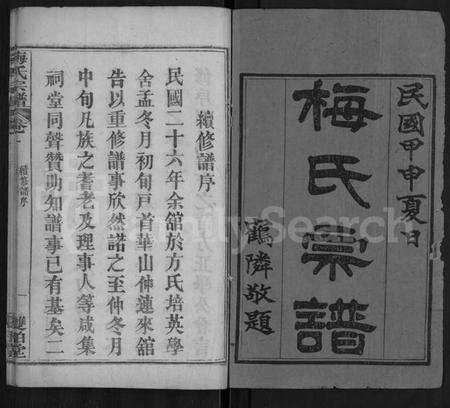 民國甲申夏日
梅氏宗譜
鶴隣敬題
續修譜序
民國二十六年余舘於方氏培英學
舍孟冬月初旬戸首華山仲蓮來舘
告以重修譜事欣然諾之至仲冬月
中旬凡族之耆老及理事人等咸集
祠堂同聲贊勛知譜事已有基矣二
梅氏宗譜 卷一
續修譜序
一
雙柏堂
FamilySearch